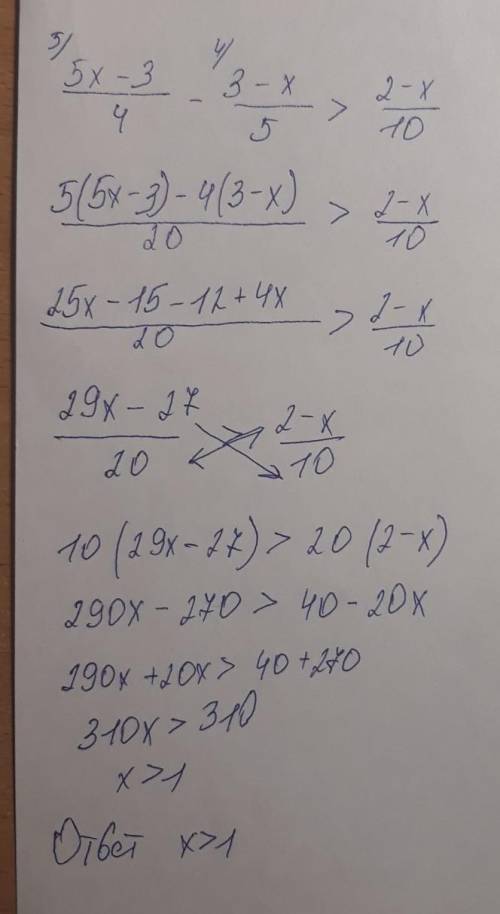 5) 4)
(5x-3)/4 - (3-x)/5 > (2-x)/10
(5(5x-3)-4(3-x))/20 > (2-x)/10
(25x-15-12+4x)/20 > (2-x)/10
(29x-27)/20 > (2-x)/10
10(29x-27)>20(2-x)
290x-270>40-20x
290x+20x>40+270
310x>310
x>1
Ответ x>1